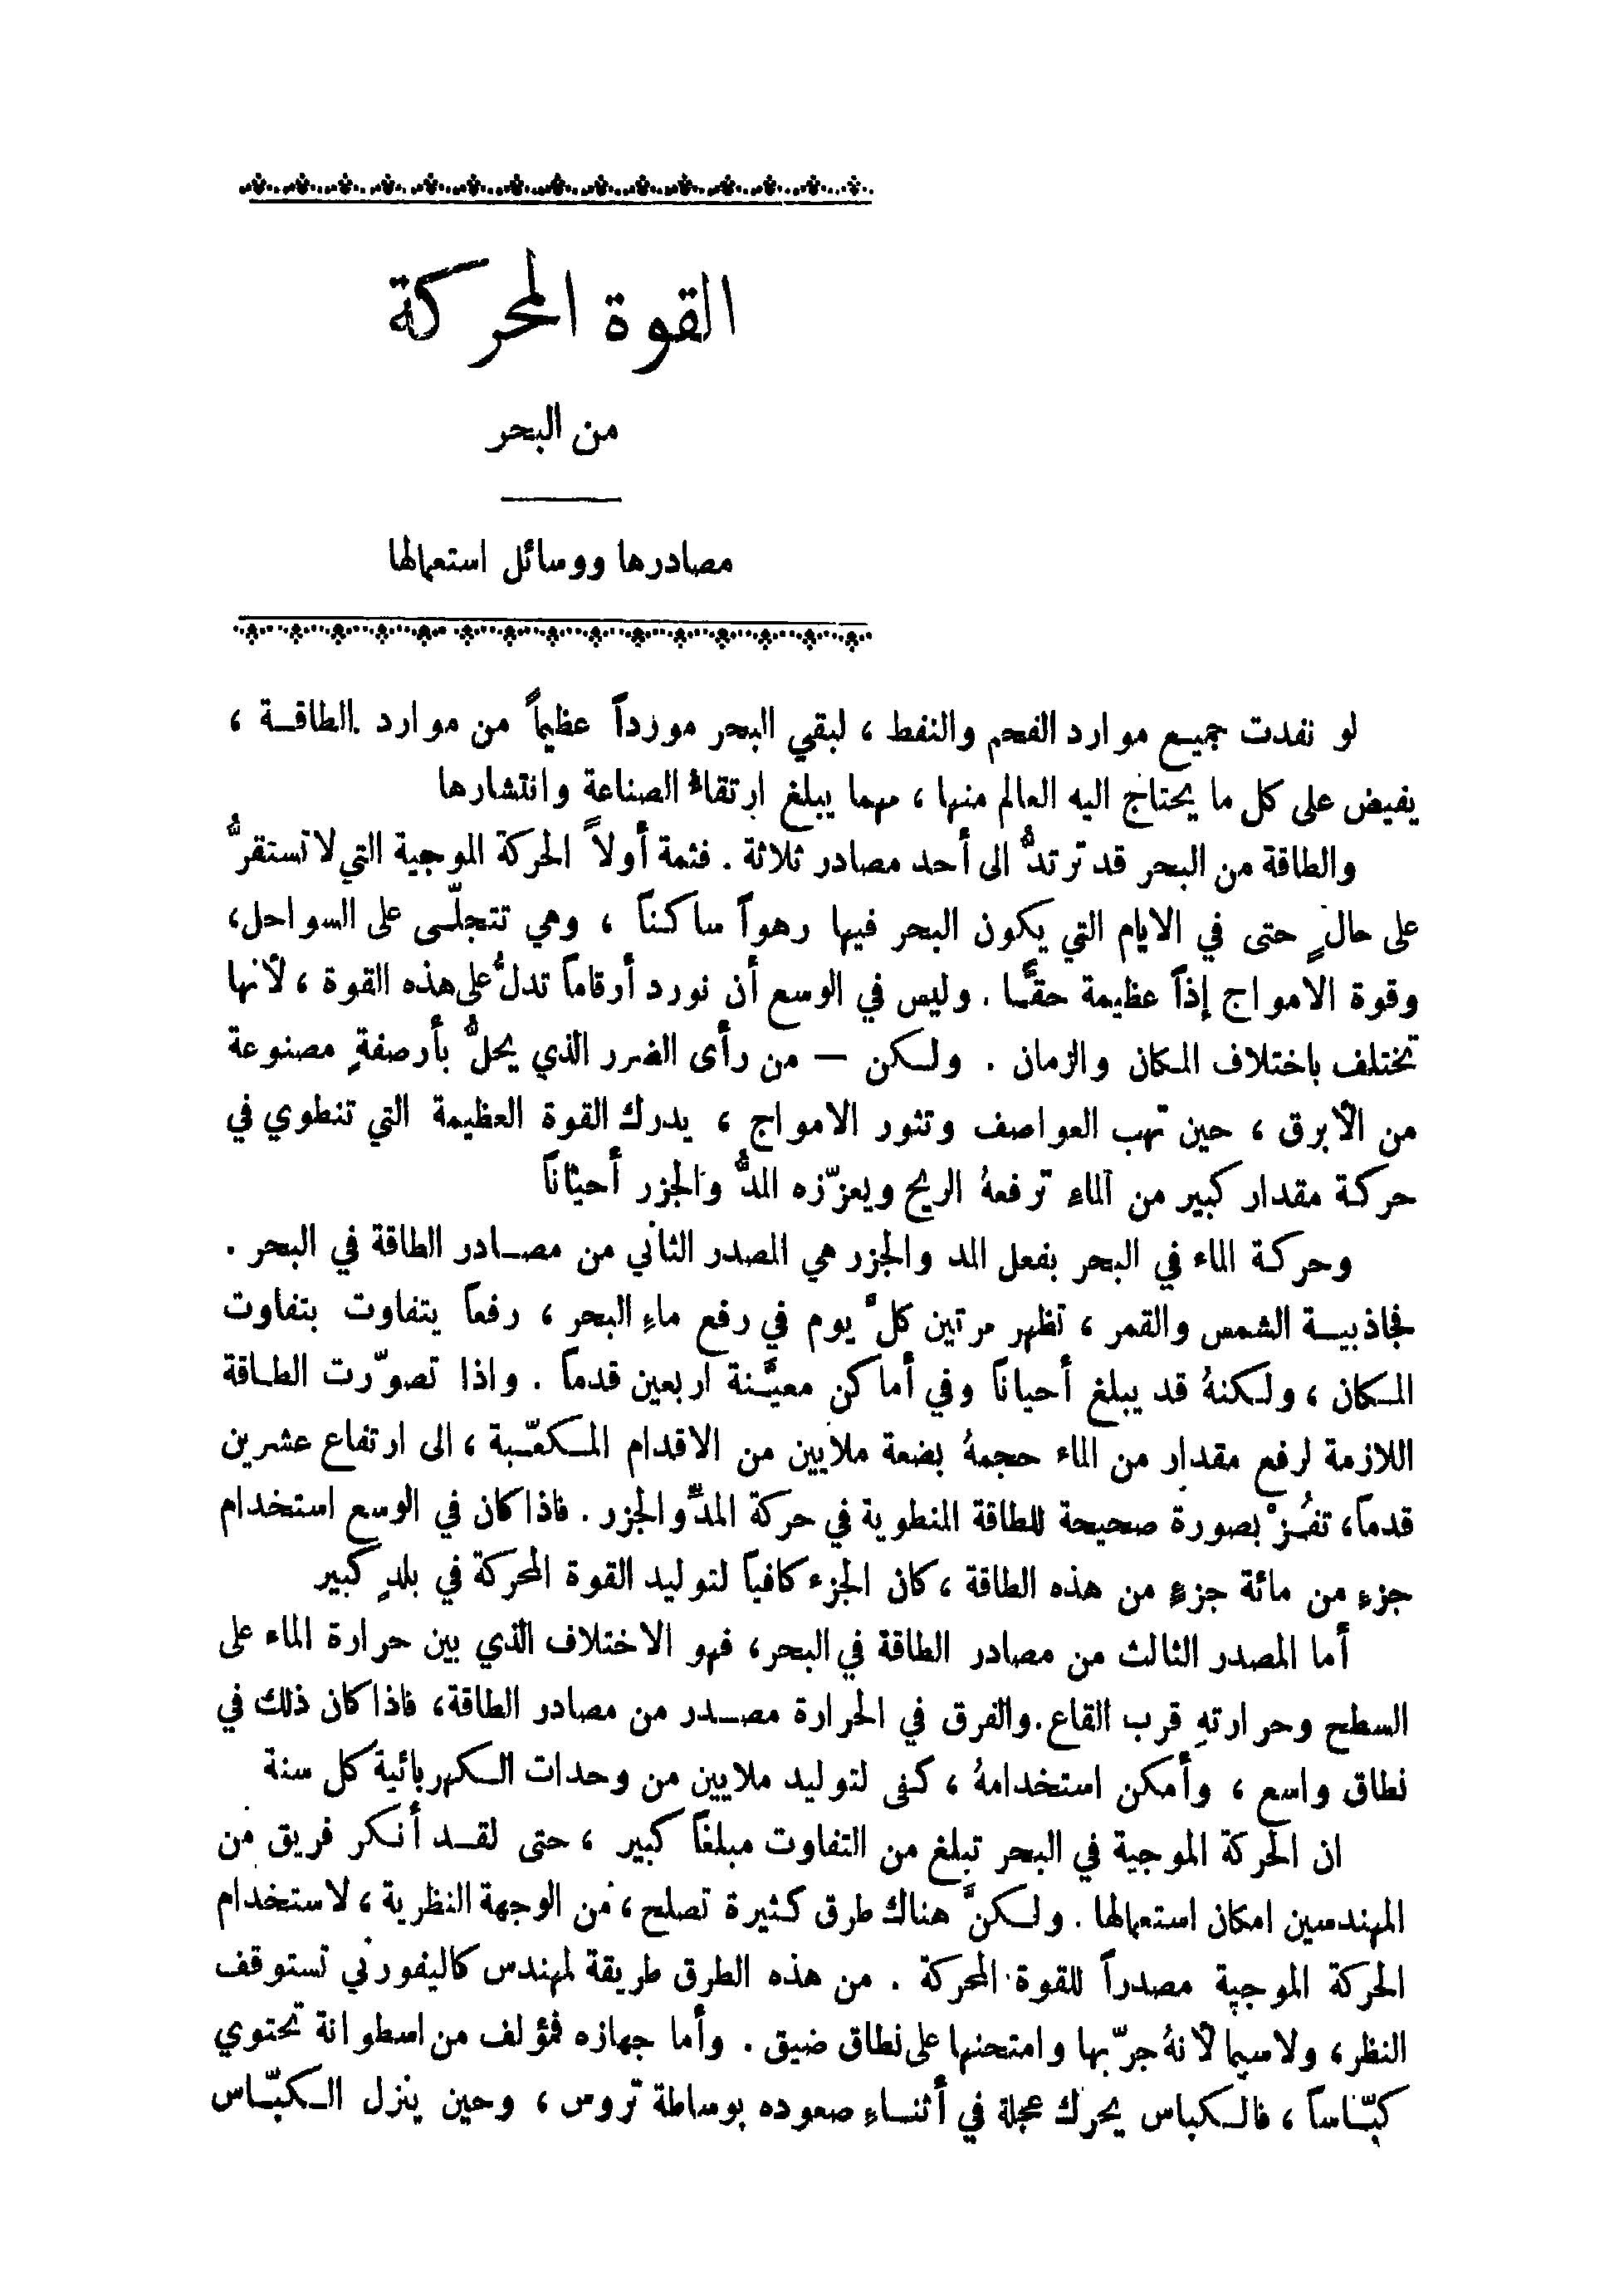 القوة المحركة
من البحر
مصادرها ووسائل استعمالها
لو نفدت جميع موارد الفحم والنفط ، لبقي البحر مورداً عظيماً من موارد الطاقة ،
يفيض على كل ما يحتاج اليه العالم منها ، مهما يبلغ ارتقاءُ الصناعة وانتشارها
والطاقة من البحر قد ترتدُّ الى أحد مصادر ثلاثة . فثمة أولاً الحركة الموجية التي لا تستقرُّ
على حالٍ حتى في الايام التي يكون البحر فيها رهواً ساكناً ، وهي تتجلّى على السواحل ،
وقوة الامواج إذاً عظيمة حقًّا . وليس في الوسع أن نورد أرقاماً تدلُّ على هذه القوة ، لأنها
تختلف باختلاف المكان والزمان . ولكن — من رأى الضرر الذي يحلُّ بأرصفةٍ مصنوعة
من الأبرق ، حين تهب العواصف وتثور الامواج ، يدرك القوة العظيمة التي تنطوي في
حركة مقدار كبير من الماءِ ترفعهُ الريح ويعزّزه المدُّ والجزر أحياناً
وحركة الماء في البحر بفعل المد والجزر هي المصدر الثاني من مصادر الطاقة في البحر .
فجاذبية الشمس والقمر ، تظهر مرتين كلَّ يوم في رفع ماءِ البحر ، رفعاً يتفاوت بتفاوت
المكان ، ولكنهُ قد يبلغ أحياناً وفي أماكن معيَّنة اربعين قدماً . واذا تصوّرت الطاقة
اللازمة لرفع مقدار من الماء حجمهُ بضعة ملايين من الاقدام المكعّبة ، الى ارتفاع عشرين
قدماً ، تفُزْ بصورة صحيحة للطاقة المنطوية في حركة المدِّ والجزر . فاذا كان في الوسع استخدام
جزءِ من مائة جزءٍ من هذه الطاقة ، كان الجزء كافياً لتوليد القوة المحركة في بلدٍ كبير
أما المصدر الثالث من مصادر الطاقة في البحر ، فهو الاختلاف الذي بين حرارة الماء على
السطح وحرارتهِ قرب القاع . والفرق في الحرارة مصدر من مصادر الطاقة ، فاذا كان ذلك في
نطاق واسع ، وأمكن استخدامهُ ، كفى لتوليد ملايين من وحدات الكهربائية كل سنة
ان الحركة الموجية في البحر تبلغ من التفاوت مبلغاً كبير ، حتى لقد أنكر فريق من
المهندسين امكان استعمالها . ولكنَّ هناك طرق كثيرة تصلح ، من الوجهة النظرية ، لاستخدام
الحركة الموجية مصدراً للقوة المحركة . من هذه الطرق طريقة لمهندس كاليفورني تستوقف
النظر ، ولاسيما لأنهُ جرّبها وامتحنها على نطاق ضيق . وأما جهازه فمؤلف من اسطوانة تحتوي
كبّاساً ، فالكباس يحرك عجلة في أثناءِ صعوده بوساطة تروس ، وحين ينزل الكبّاس